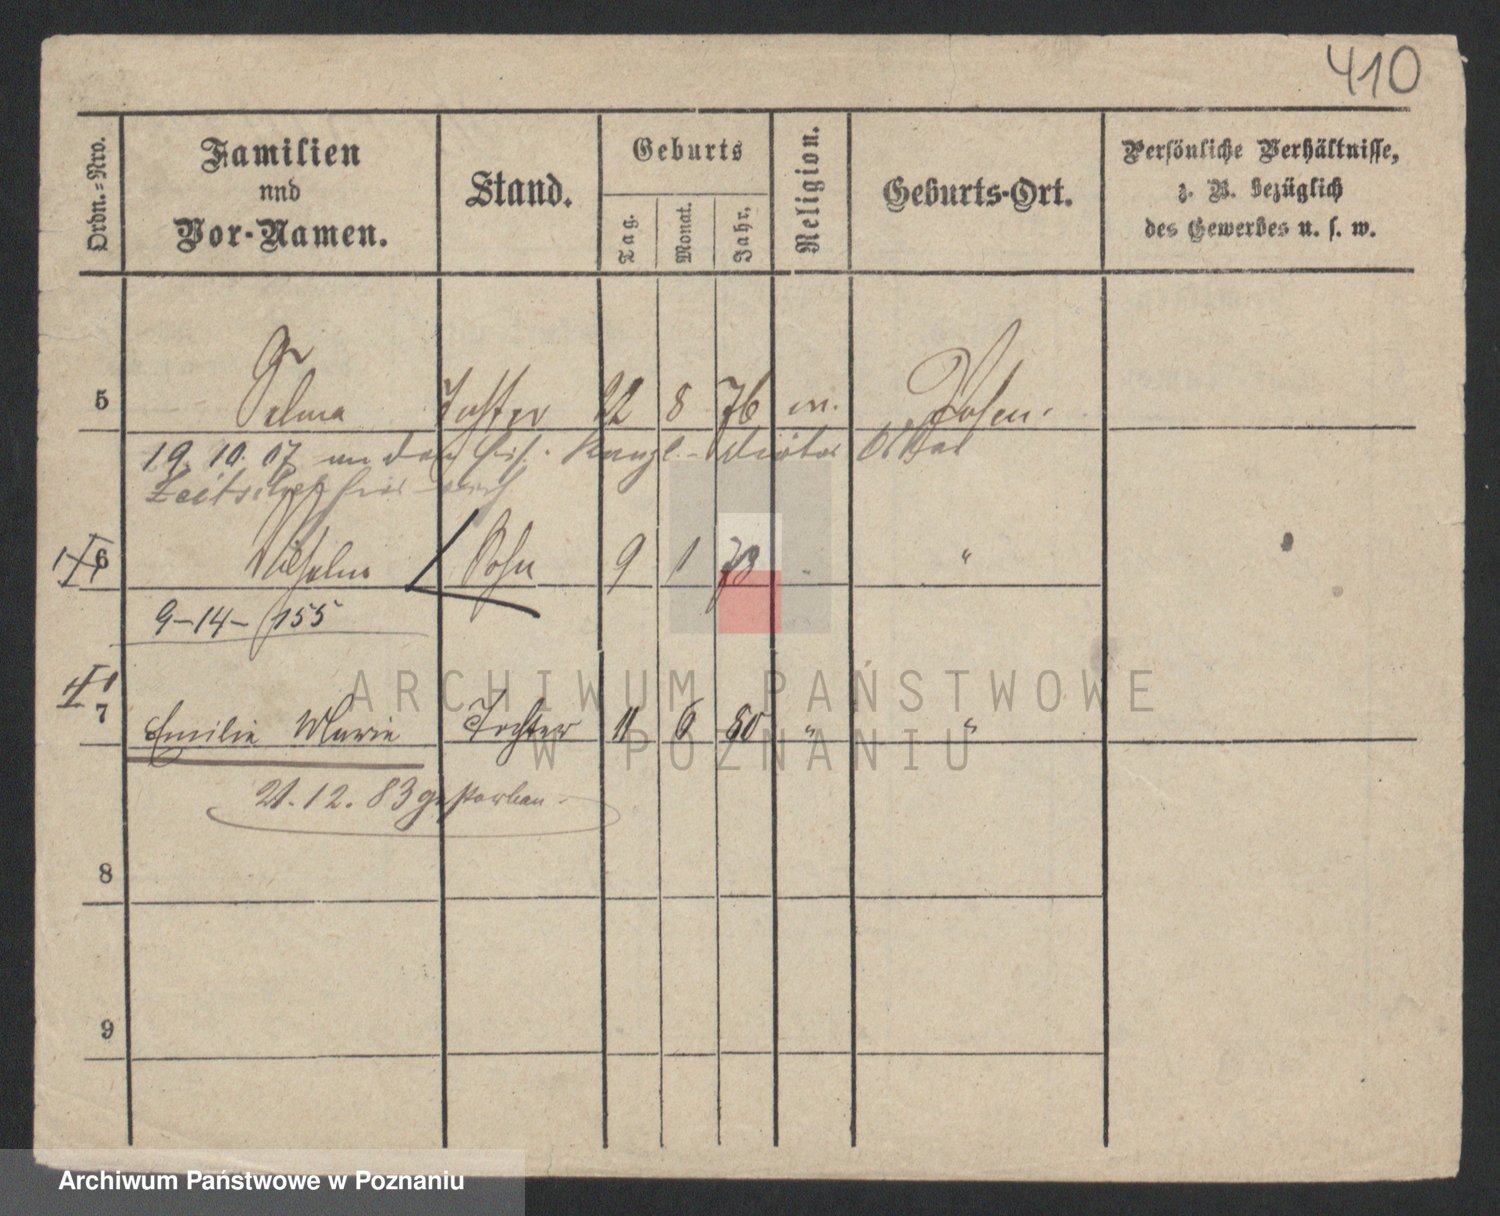 410
Ordn.=Nro.
Familien
und
Vor-Namen.
Stand.
Geburts
Tag.
Monat.
Jahr.
Religion.
Geburts-Ort.
Persönliche Verhältnisse,
z. B. bezüglich
des Gewerbes u. s. w.
5 Selma Tochter 22 8 76 Posen.
19. 10. 07 an den Kanzl.-Diätar
6 Wilhelm Sohn 9 1 "
9-14-155
7 Emilie Marie Tochter 11 6 80 " "
21. 12. 83 gestorben
8
9
ARCHIWUM PAŃSTWOWE
W POZNANIU
Archiwum Państwowe w Poznaniu